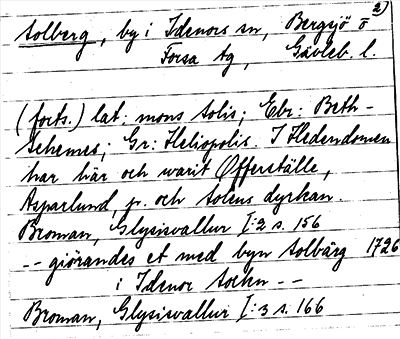 2)
Solberg, by i Idenors sn, Bergsjö o
Forsa tg, Gävleb. l.
(forts.) lat: mons solis; Ebr: Beth-
Schemes; Gr: Heliopolis. I Hedendomen
har här och warit Offerställe,
Asparlund, p. och Solens dyrkan.
Broman, Glysisvallur I:2 s. 156
-- giörandes et med byn Solbärg 1726
i Idenor Sokn --
Broman, Glysisvallur I:3 s. 166